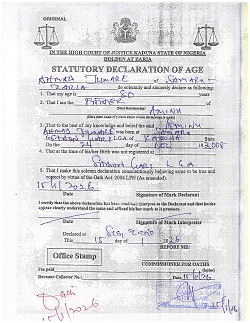 ORIGINAL
IN THE HIGH COURT OF JUSTICE KADUNA STATE OF NIGERIA
HOLDEN AT ZARIA
STATUTORY DECLARATION OF AGE
AHMAD JUMARE of SAMARU
ZARIA do solemnly and sincerely declare as following:
1. That my age is 50 years
2. That I am the FATHER of
(State Relationship)
AMINU
3. That to the best of my knowledge and belief the said AMINU
AHMAD JUMARE was born at SAMARU
SABON GARI L.G.A of KADUNA
On the 24 day of 2008
4. That at the time of his/her Birth was not registered at
SABON GARI LGA
5. That I make this solemn declaration conscientiously believing same to be true and
correct by virtue of the Oath Act 2004 LFN (As amended).
15/1/2026
Signature of Mark Declarant
I certify that the above declaration has been interpreted to the Declarant and that he/she
appear clearly understand the same and affixed his/her mark in it presence.
Signature of Mark Interpreter
Declared at
This 15 day of 1 2026
BEFORE ME:
Office Stamp
COMMISSIONER FOR OATHS
Fee paid
Revenue Collector No. Date 15/1/26
15/1/2026